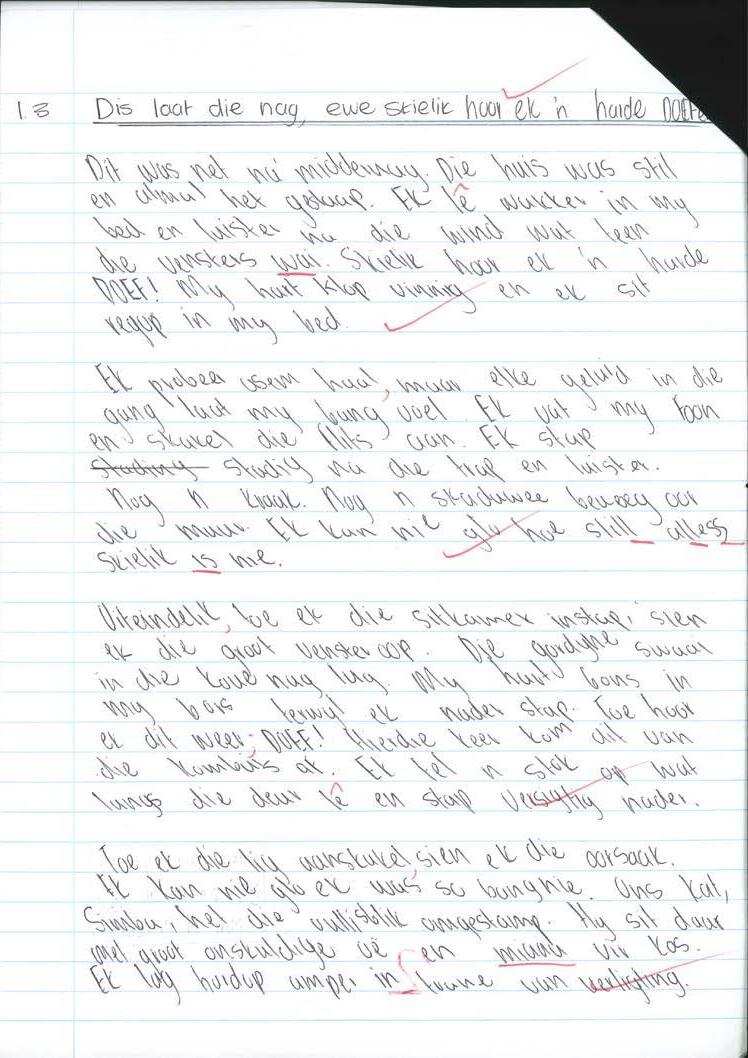 1.3 Dis laat die nag, ewe skielik hoor ek 'n harde DOEF
Dit was net na middernag. Die huis was stil
en almal het geslaap. Ek lê wakker in my
bed en luister na die wind wat teen
die vensters wai. Skielik hoor ek 'n harde
DOEF! My hart klop vinnig en ek sit
regop in my bed.
Ek probeer asem haal, maar elke geluid in die
gang laat my bang voel. Ek vat my foon
en skakel die flits aan. Ek stap
stading stadig na die trap en luister.
Nog 'n kraak. Nog 'n skaduwee beweeg oor
die muur. Ek kan nie glo hoe still alless
skielik is nie.
Uiteindelik, toe ek die sitkamer instap, sien
ek die groot venster oop. Die gordyne swaai
in die koue nag lug. My hart bons in
my bors terwyl ek nader stap. Toe hoor
ek dit weer; DOEF! Hierdie keer kom dit van
die kombuis af. Ek tel 'n stok op wat
langs die deur lê en stap versigtig nader.
Toe ek die lig aanskakel, sien ek die oorsaak.
Ek kan nie glo ek was so bangnie. Ons kat,
Simba, het die vullisblik omgestamp. Hy sit daar
met groot onskuldige oë en miaau vir kos.
Ek lag hardop amper in trane van verligting.